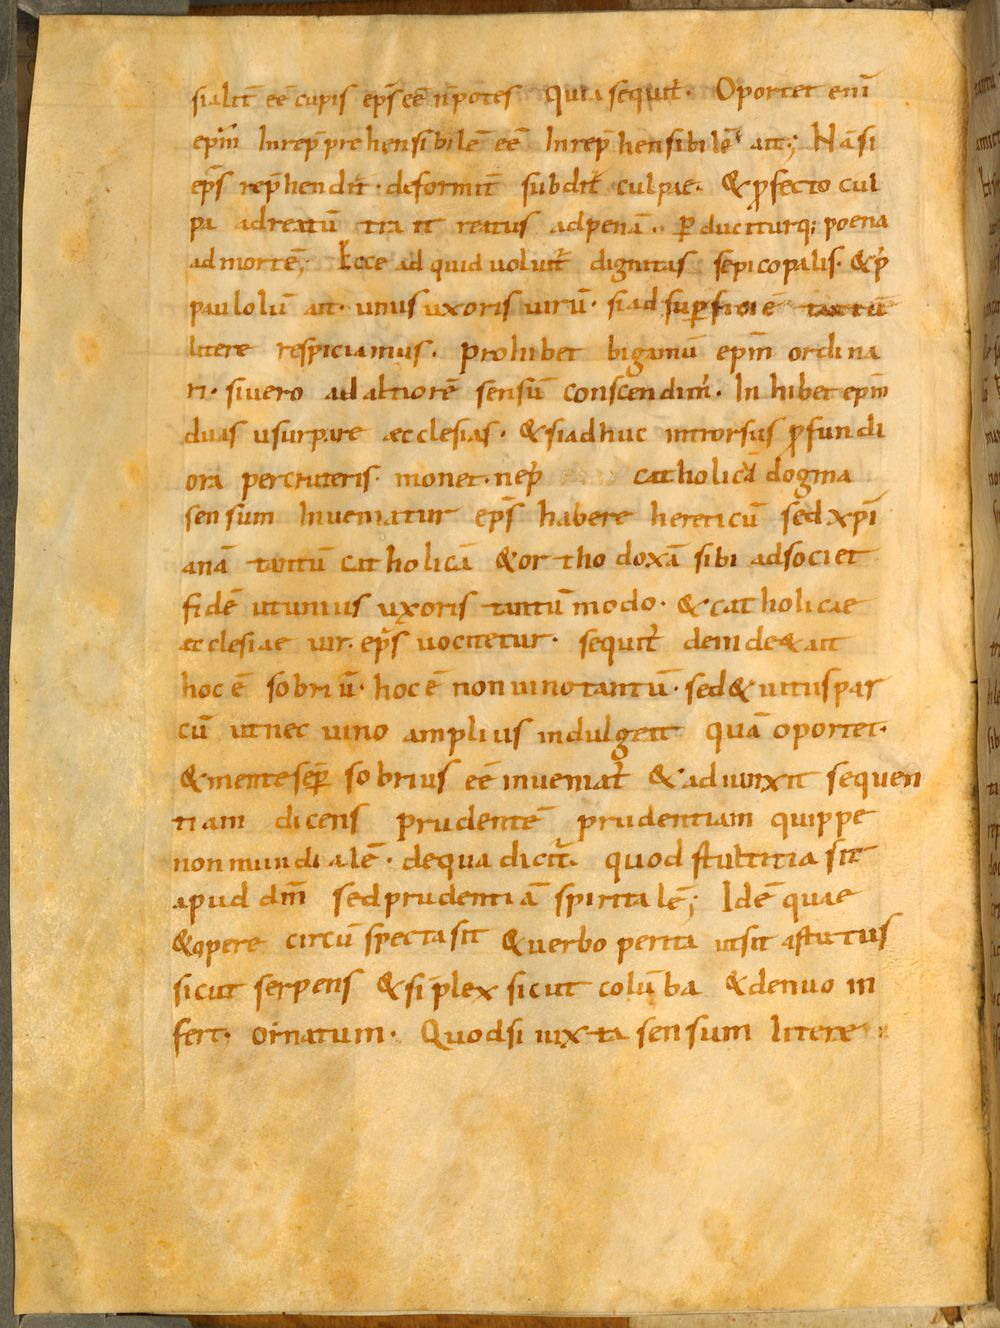 sialit̄ eē cupis ep̄s eē n̄ potes Quia sequit̄. Oportet enī
ep̄m Inrep̄prehensibilē eē Inrep̄hensibilē ait; Nā si
ep̄s rep̄hendit. deformit̄ subdit̄ culpae. & ꝓfecto cul
pa ad reatū trait reatus ad penā. ꝑduciturq; poena
ad mortē; Ecce ad quid uoluit̄ dignitas sepicopalis. & p̄
paulolū ait. unus uxoris uirū. si ad suꝑficiē tantū
litere respiciamus. prohibet bigamū ep̄m ordina
ri. si uero ad altiorē sensū conscendim̄. Inhibet ep̄m
duas usurpare aecclesias. & si adhuc introrsus ꝓfundi
ora percruteris. monet. nep̄ catholicā dogma
sensum Inueniatur ep̄s habere hereticū sed xp̄i
anā tantū catholicā & orthodoxā sibi adsociet
fidē ut unius uxoris tantū modo. & catholicae
aecclesiae uir. ep̄s uocitetur. sequit̄ deinde & ait
hoc ē sobriū. hoc ē non uino tantū. sed & uitus par
cū ut nec uino amplius indulgeat quā oportet.
& mente sēꝑ sobrius eē inueniat̄ & adiunxit sequen
tiam dicens prudentē prudentiam quippe
non mundialē. de qua dicit̄ quod stultitia sit
apud dm̄ sed prudentiā spiritalē; Idē quae
& opere circūspecta sit & uerbo perita ut sit astutus
sicut serpens & sīplex sicut colūba & denuo in
fert. ornatum. Quod si iuxta sensum litere